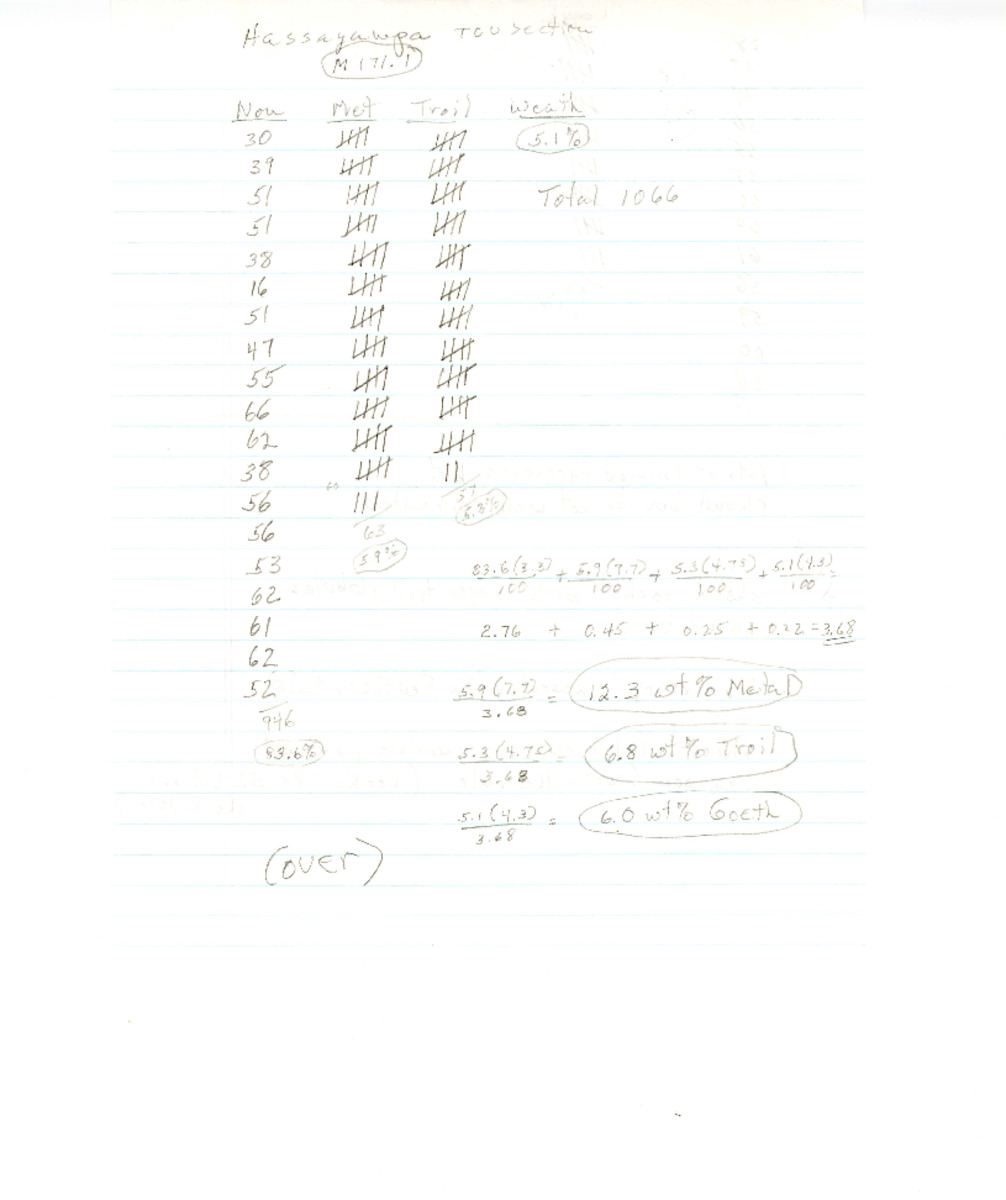 Hassayampa TCU section
M171.1
Non Met Troil Weath
30 𝍸 𝍸 5.1%
39 𝍸 𝍸
51 𝍸 𝍸 Total 1066
51 𝍸 𝍸
38 𝍸 𝍸
16 𝍸 𝍸
51 𝍸 𝍸
47 𝍸 𝍸
55 𝍸 𝍸
66 𝍸 𝍸
62 𝍸 𝍸
38 𝍸 ||
60
56 ||| 57
5.3%
56 63
53 5.9%
83.6(3.3)/100 + 5.9(7.7)/100 + 5.3(4.75)/100 + 5.1(4.3)/100 =
62
61 2.76 + 0.45 + 0.25 + 0.22 = 3.68
62
52 5.9(7.7)/3.68 = 12.3 wt% Metal
946
83.6% 5.3(4.75)/3.68 = 6.8 wt% Troil
5.1(4.3)/3.68 = 6.0 wt% Goeth
(over)